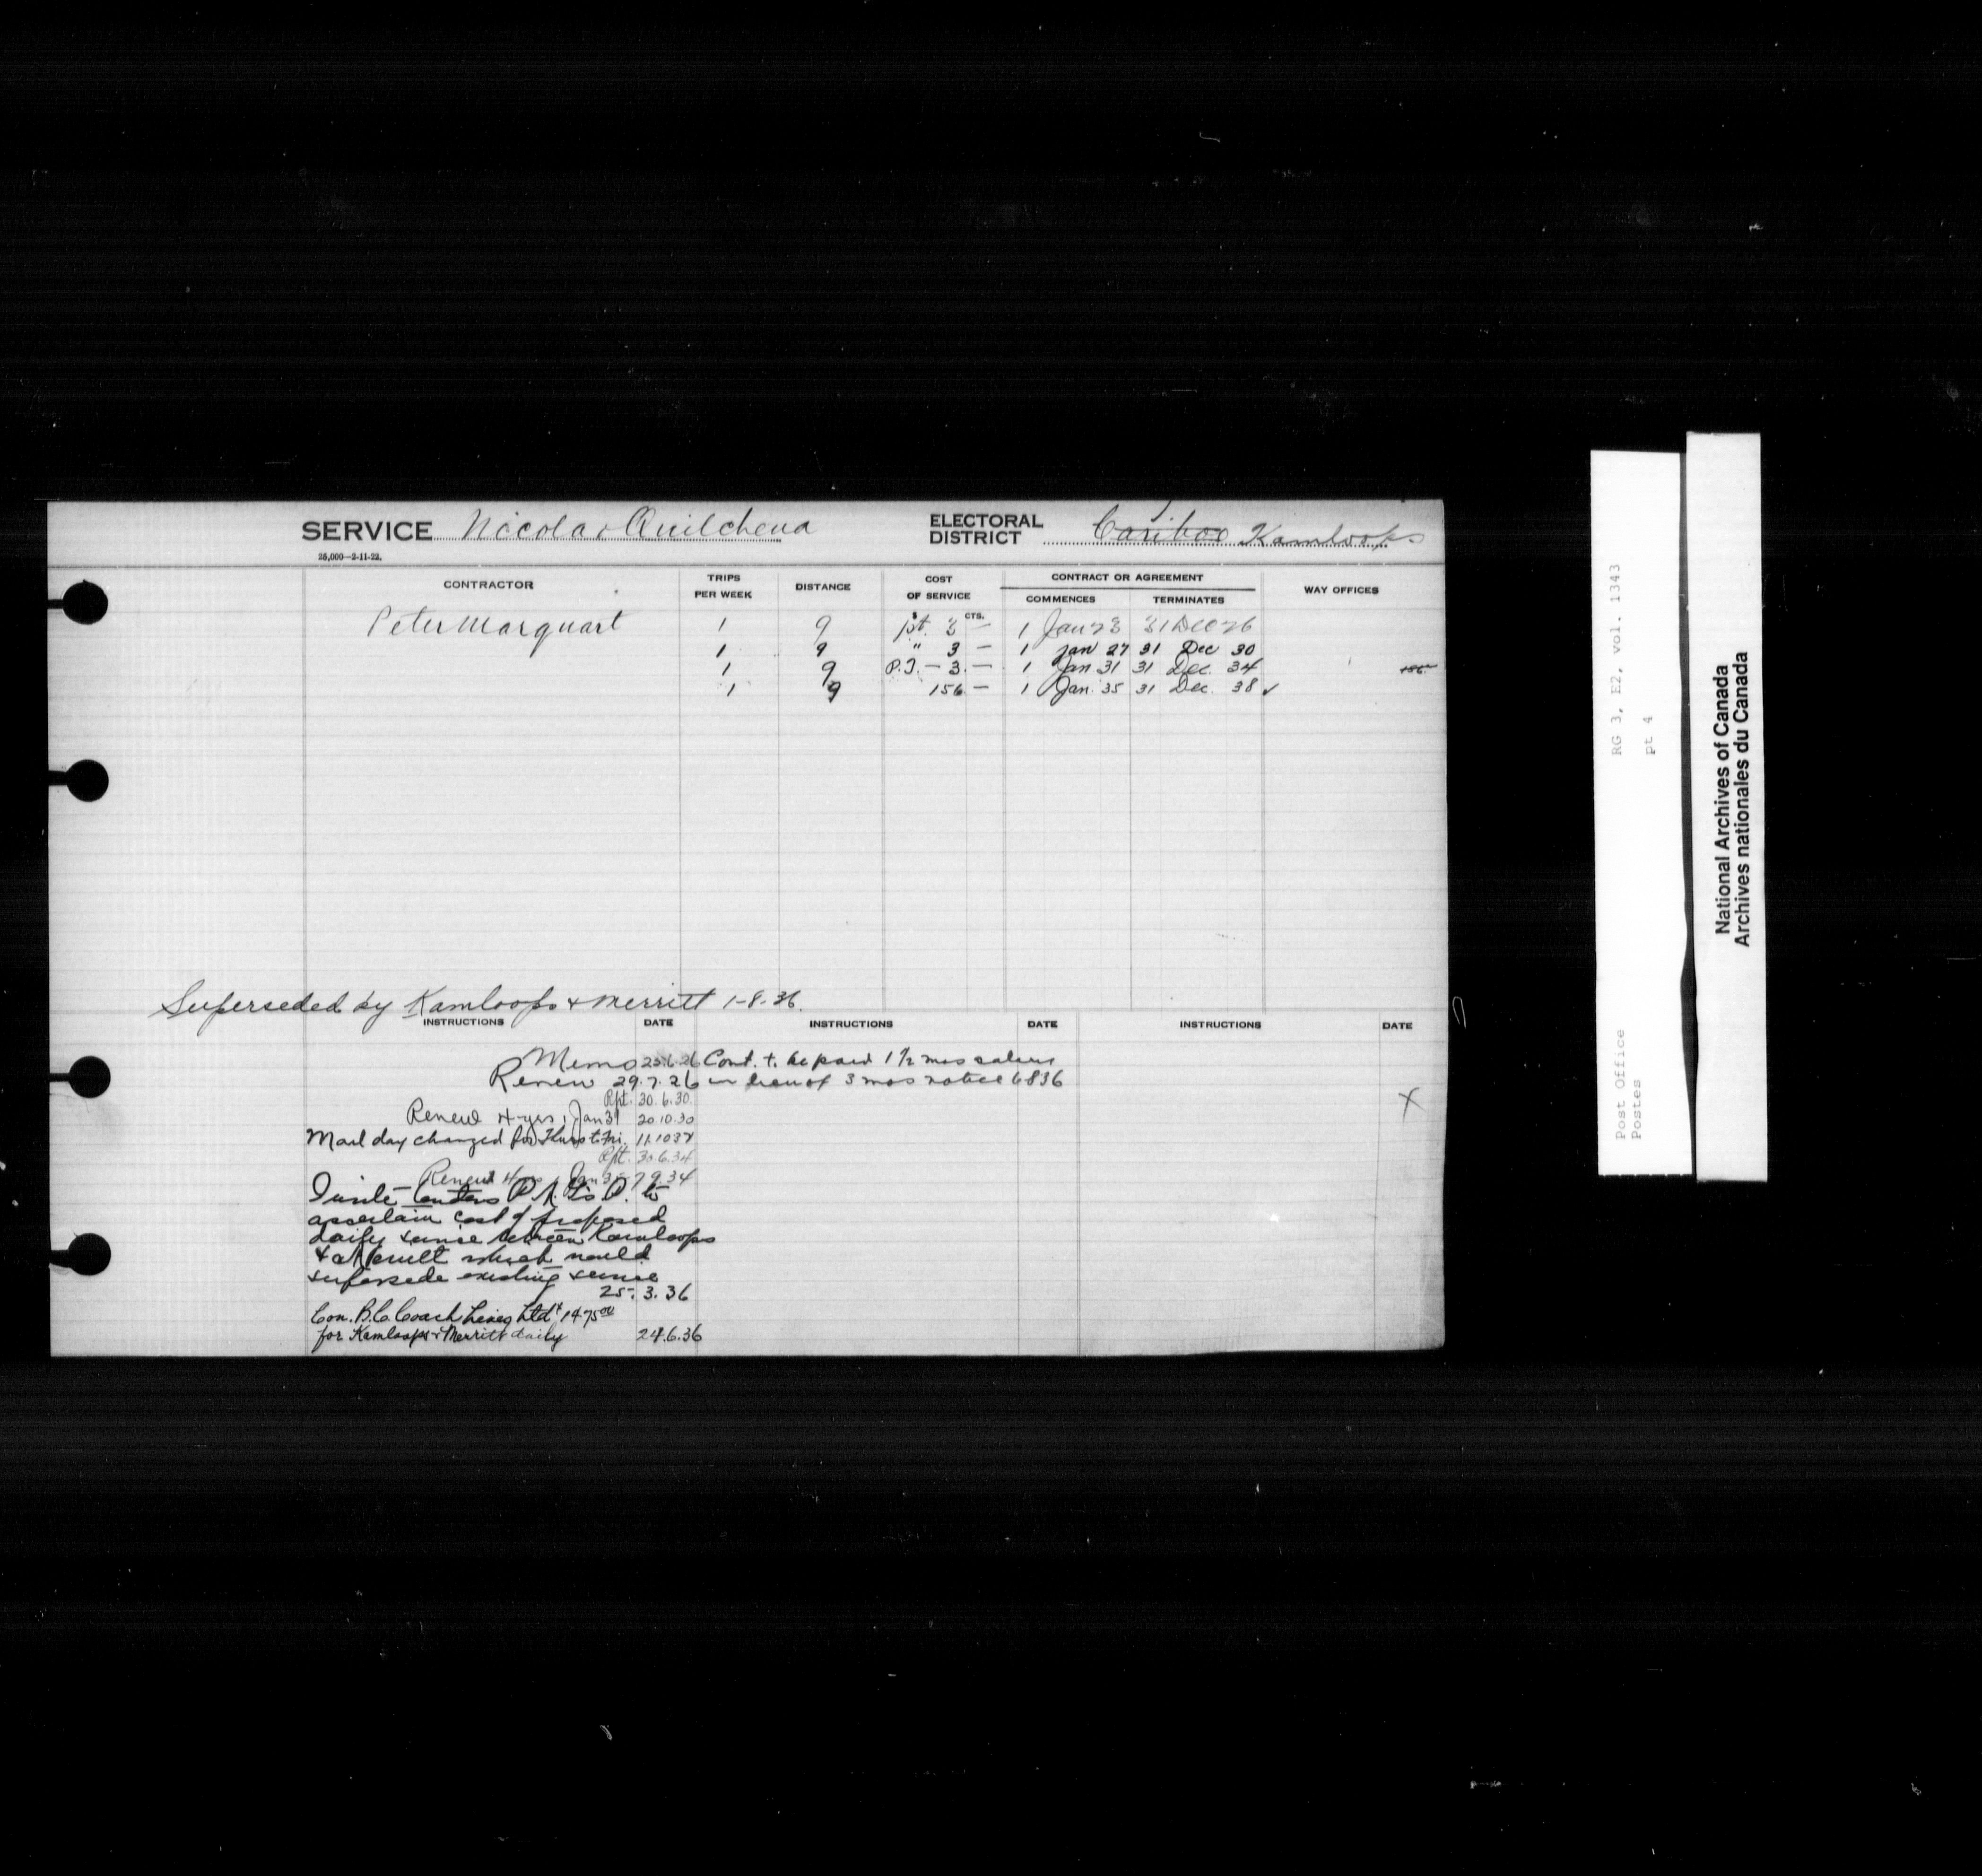 SERVICE Nicola & Quilchena
ELECTORAL DISTRICT Cariboo Kamloops
25,000—2-11-22.
CONTRACTOR TRIPS PER WEEK DISTANCE COST OF SERVICE CONTRACT OR AGREEMENT WAY OFFICES
COMMENCES TERMINATES
$ CTS.
Peter Marquart 1 9 pt. 3 — 1 Jan 23 31 Dec 26
1 9 " 3 — 1 Jan 27 31 Dec 30
1 9 P.T. — 3 — 1 Jan 31 31 Dec. 34 156
1 9 156 — 1 Jan. 35 31 Dec. 38 ✓
Superseded by Kamloops & Merritt 1-8-36.
INSTRUCTIONS DATE INSTRUCTIONS DATE INSTRUCTIONS DATE
Memo 25.6.26 Cont. to be paid 1½ mos salary
Renew 29.7.26 in lieu of 3 mos notice 6836
Rpt. 30.6.30
Renew 4 yrs, Jan 31 20.10.30
X
Mail day changed from Thurs to Fri.
Rpt. 30.6.34
Renew 4 yrs, Jan 35 7.9.34
Invite tenders to
ascertain cost of proposed
daily service between Kamloops
& Merritt which would
supersede existing service
25.3.36
Con. B.C. Coach Lines Ltd 1475 00
for Kamloops & Merritt daily 24.6.36
RG 3, E2, vol. 1343
pt 4
Post Office
Postes
National Archives of Canada
Archives nationales du Canada